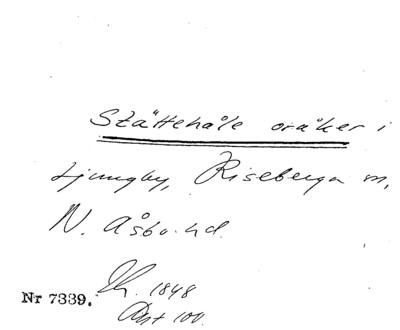 Stättehåle oråker i
Ljungby, Riseberga m,
N. Åsbo hd.
Nr 7339. Lh. 1848
Akt 100.